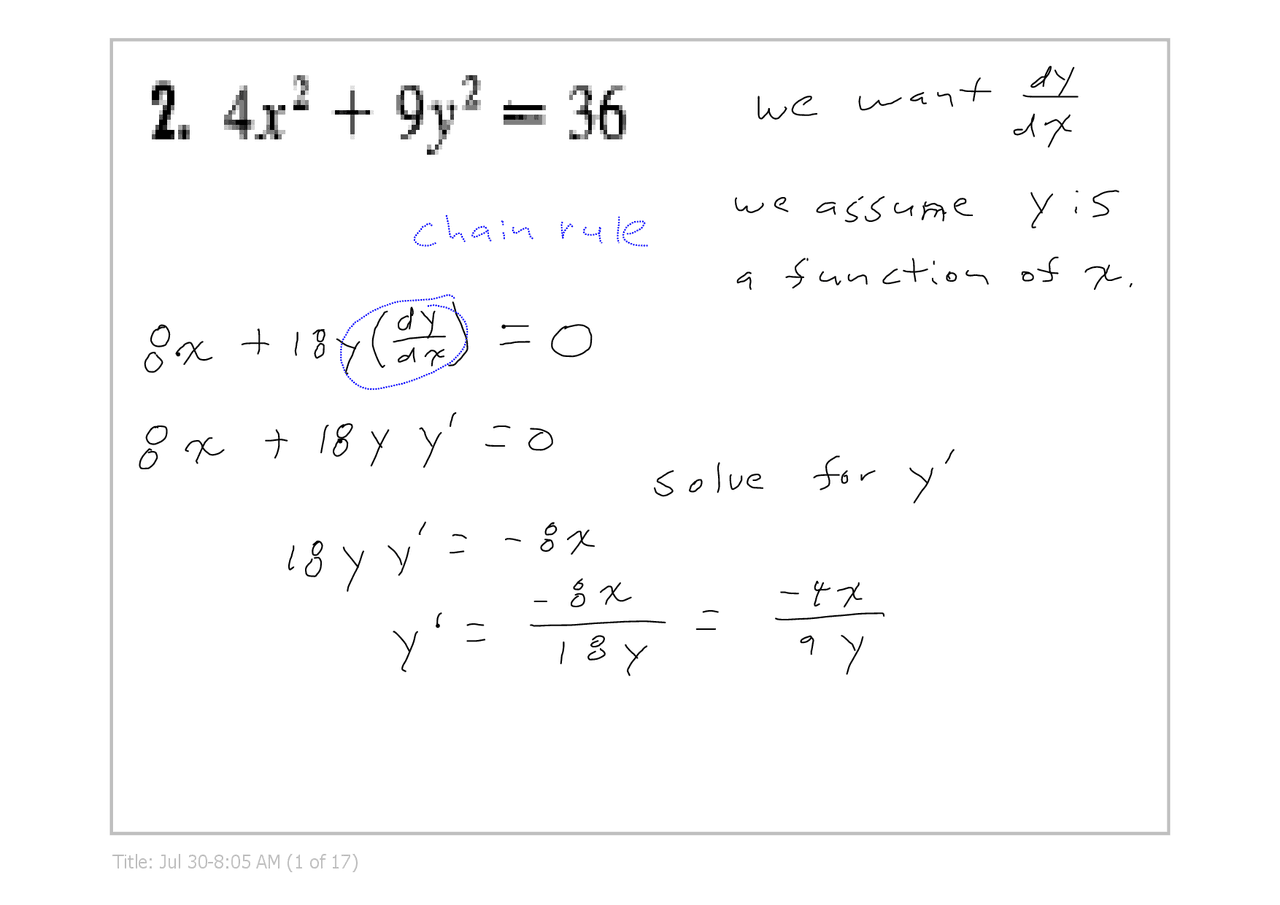 2. 4x² + 9y² = 36
we want dy/dx
we assume y is
a function of x.
chain rule
8x + 18y(dy/dx) = 0
8x + 18y y' = 0
solve for y'
18y y' = -8x
y' = -8x/18y = -4x/9y
Title: Jul 30-8:05 AM (1 of 17)